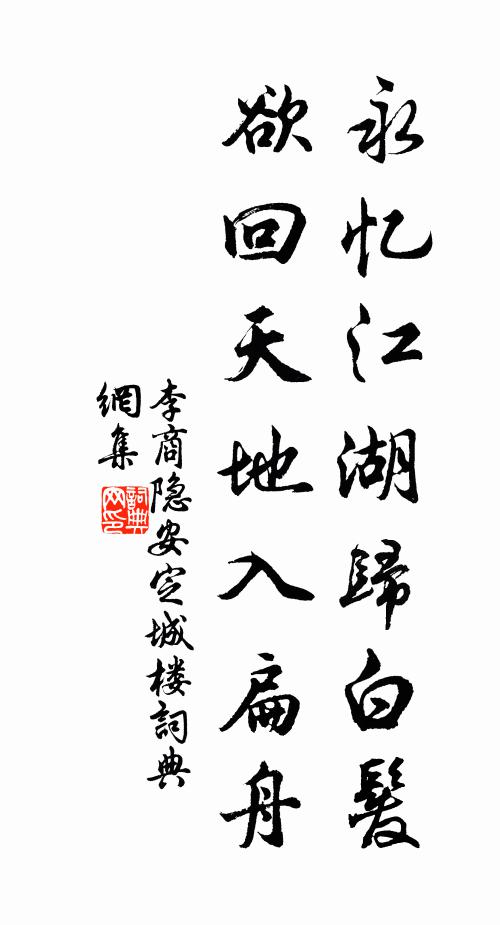 永忆江湖歸白髮
欲回天地入扁舟
李商隐安定城楼詞典
網集
詞典网印